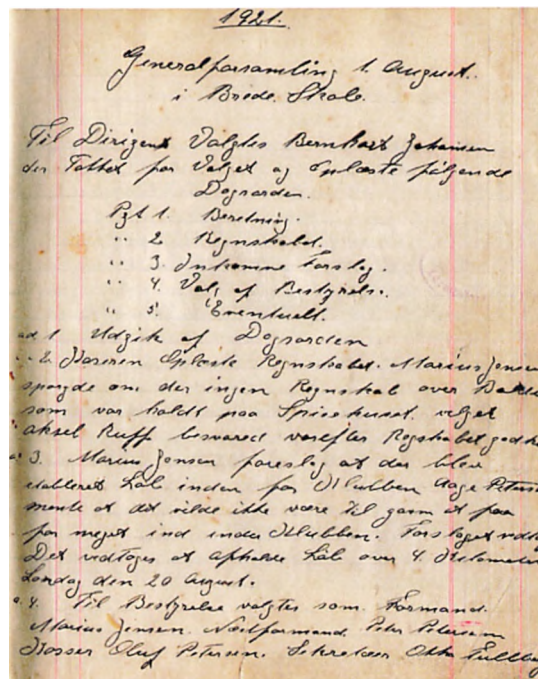 1921.
Generalforsamling 1. August.
i Brede Skole.
Til Dirigent Valgtes Bernhart Johansen
der Takket for Valget og Oplæste følgende
Dagsorden.
Pgt 1. Beretning.
" 2 Regnskabet.
" 3. Inkomne Forslag.
" 4. Valg af Bestyrelse.
" 5. Eventuelt.
ad. 1. Udgik af Dagsorden
" 2. Kasseren Oplæste Regnskabet. Marius Jensen
spurgde om der ingen Regnskab over
som var holdt paa Spisehuset. vilget
Aksel Ruff besvared vorefter Regskabet godk
a. 3. Marius Jensen foreslog at der blev
etableret Løb inden for Klubben Aage Peters
mente at det vilde ikke være til gavn at faa
for meget ind under Klubben. Forslaget vedt
Det vedtoges at afholde Løb over 4. Kilometer
Lørdag den 20 August.
a. 4. Til Bestyrelse valgtes som Formand.
Marius Jensen. Næstformand. Peter Petersen
Kasser Oluf Petersen. Sekretær Otto